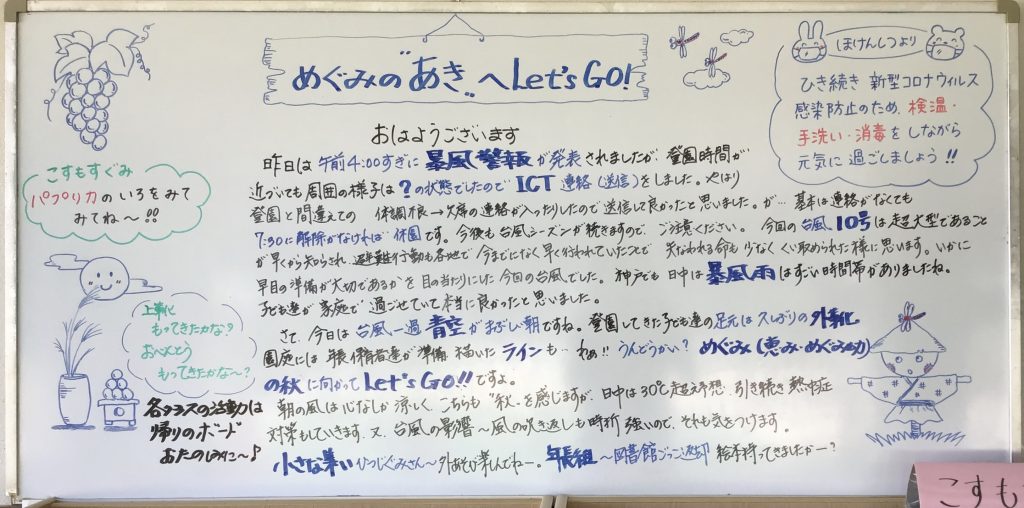 めぐみの"あき"へLet's GO!
ほけんしつより
ひき続き 新型コロナウィルス
感染防止のため、検温・
手洗い・消毒をしながら
元気に過ごしましょう!!
こすもすぐみ
パプリカのいろをみて
みてね〜!!
上靴
もってきたかな?
おべんとう
もってきたかな〜?
各クラスの活動は
帰りのボード
おたのしみに〜♪
おはようございます
昨日は午前4:00すぎに暴風警報が発表されましたが、登園時間が
近づいても周囲の様子は?の状態でしたのでICT連絡(送信)をしました。やはり
登園と間違えての 体調不良→欠席の連絡が入ったりしたので送信して良かったと思いました。が… 基本は連絡がなくても
7:30に解除がなければ休園です。今後も台風シーズンが続きますので、ご注意ください。 今回の台風10号は超大型であること
が早くから知らされ、避難行動も各地で今までになく早く行われていたことで 失なわれる命も少なくくい止められた様に思います。いかに
早目の準備が大切であるかを目の当たりにした今回の台風でした。神戸でも日中は暴風雨はすごい時間帯がありましたね。
子ども達が家庭で過ごせていて本当に良かったと思いました。
さて、今日は台風一過 青空がまぶしい朝ですね。登園してきた子ども達の足元は久しぶりの外靴
園庭には 年長保育者達が準備、描いたラインも… わぁ!! うんどうかい? めぐみ(恵み・めぐみ幼)
の秋に向かってLet's GO!!ですよ。
朝の風は心なしか涼しく、こちらも"秋"を感じますが、日中は30℃超え予想、引き続き熱中症
対策もしていきます。又、台風の影響〜風の吹き返しも時折強いので、それも気をつけます。
小さな集い ひつじぐみさん〜外あそび楽しんでね〜。 年長組〜図書館ごっこ返却 絵本持ってきましたか〜?
こすも